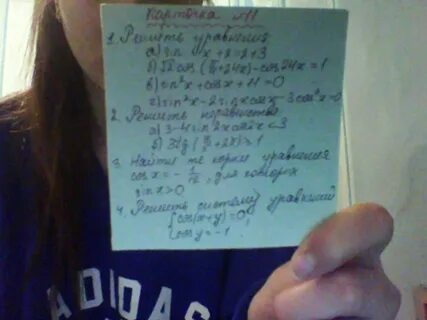 Карточка №11
1. Решить уравнения
а) sin x + 2 = 3
б) √2 cos (π/4 + 24x) - cos 24x = 1
в) sin²x + cos x + 11 = 0
г) sin²x - 2 sin x cos x - 3 cos²x = 0
2. Решить неравенства
а) 3 - 4 sin 2x cos 2x < 3
б) 3 tg ( + 2x) > 1
3. Найти те корни уравнения
cos x = - , для которых
sin x > 0
4. Решить систему уравнений
cos(x+y) = 0,
cos y = -1
ADIDAS